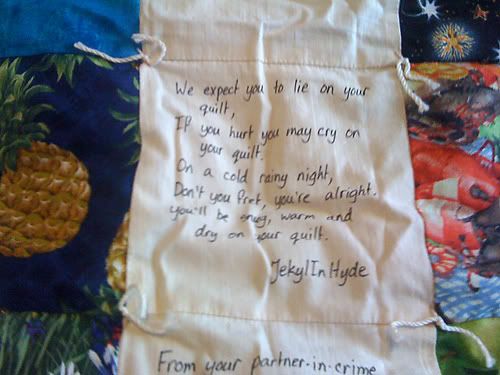 We expect you to lie on your
quilt,
If you hurt you may cry on
your quilt.
On a cold rainy night,
Don't you fret, you're alright.
You'll be snug, warm and
dry on your quilt.
JekylInHyde
From your partner-in-crime